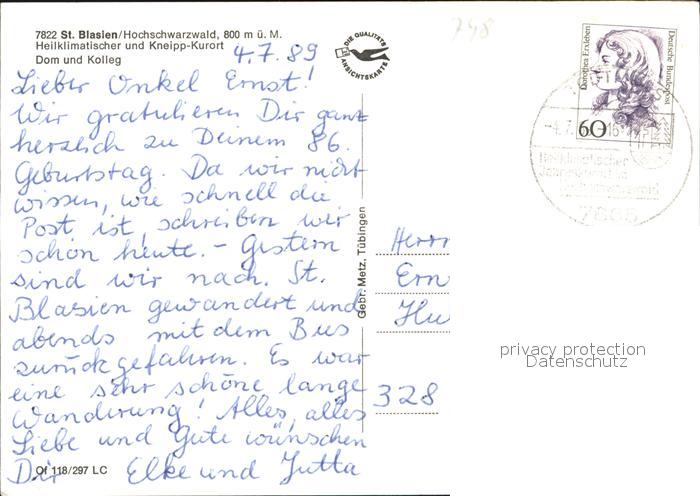 748
7822 St. Blasien/Hochschwarzwald, 800 m ü. M.
Heilklimatischer und Kneipp-Kurort
Dom und Kolleg
4.7.89
DIE QUALITÄTS
ANSICHTSKARTE
Dorothea Erxleben
Deutsche Bundespost
60
-4.7.
-16
Heilklimatischer
7868
Lieber Onkel Ernst!
Wir gratulieren Dir ganz
herzlich zu Deinem 86.
Geburtstag. Da wir nicht
wissen, wie schnell die
Post ist, schreiben wir
schon heute. - Gestern
sind wir nach St.
Blasien gewandert und
abends mit dem Bus
zurückgefahren. Es war
eine sehr schöne lange
Wanderung! Alles, alles
Liebe und Gute wünschen
Dir Elke und Jutta
Of 118/297 LC
Gebr. Metz, Tübingen
Herrn
Ern
Hu
328
privacy protection
Datenschutz